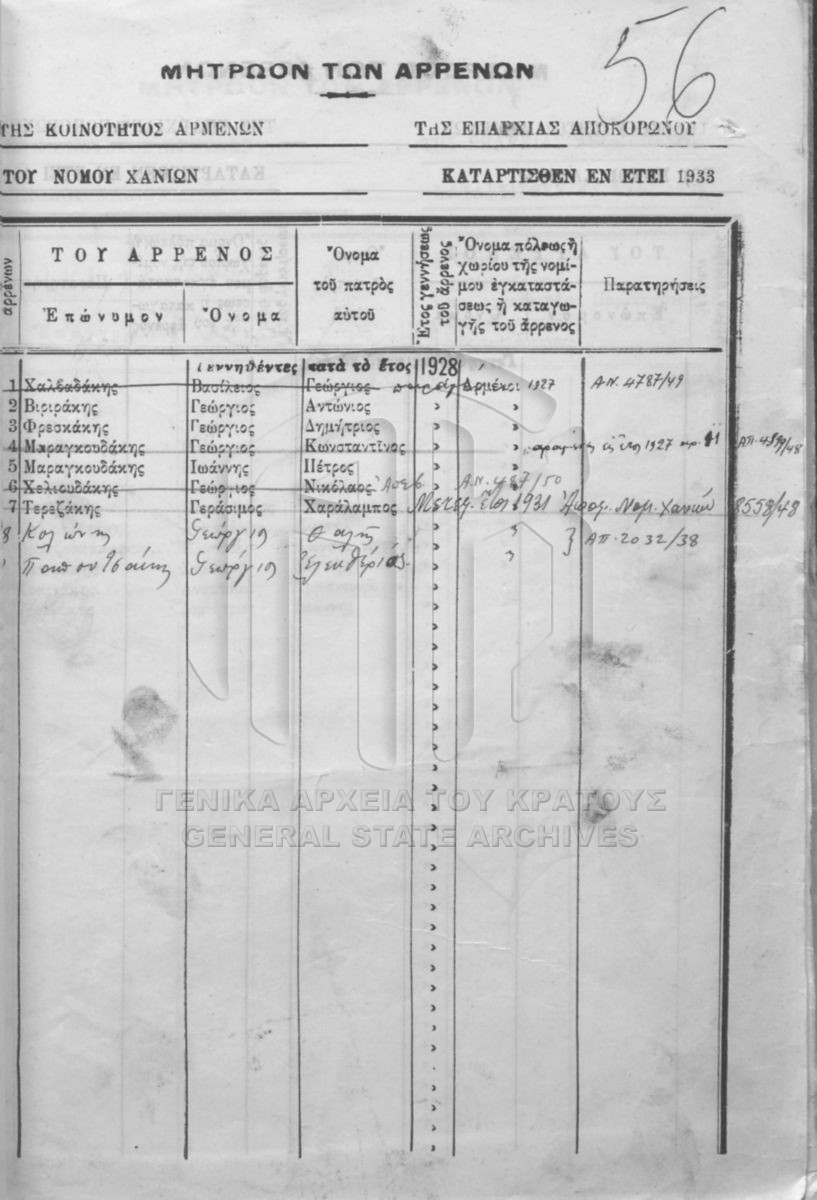 56
ΜΗΤΡΩΟΝ ΤΩΝ ΑΡΡΕΝΩΝ
ΤΗΣ ΚΟΙΝΟΤΗΤΟΣ ΑΡΜΕΝΩΝ ΤΗΣ ΕΠΑΡΧΙΑΣ ΑΠΟΚΟΡΩΝΟΥ
ΤΟΥ ΝΟΜΟΥ ΧΑΝΙΩΝ ΚΑΤΑΡΤΙΣΘΕΝ ΕΝ ΕΤΕΙ 1933
ἀρρένων
ΤΟΥ ΑΡΡΕΝΟΣ
Ἐπώνυμον
Ὄνομα
Ὄνομα
τοῦ πατρὸς
αὐτοῦ
Ἔτος γεννήσεως
τοῦ ἄρρενος
Ὄνομα πόλεως ἢ
χωρίου τῆς νομί-
μου ἐγκαταστά-
σεως ἢ καταγω-
γῆς τοῦ ἄρρενος
Παρατηρήσεις
Γεννηθέντες κατὰ τὸ ἔτος 1928
1 Χαλεαδάκης Βασίλειος Γεώργιος Ἀρμένοι 1927 Α.Ν. 4787/49
2 Βιριράκης Γεώργιος Ἀντώνιος „
3 Φρεσκάκης Γεώργιος Δημήτριος „
4 Μαραγκουδάκης Γεώργιος Κωνσταντῖνος „ 1927 ΑΠ. 4590/48
5 Μαραγκουδάκης Ἰωάννης Πέτρος „
6 Χελιουδάκης Γεώργιος Νικόλαος Α.Ν. 487/50
7 Τερεζάκης Γεράσιμος Χαράλαμπος Μετεγ. 1931 Ἀποφ. Νομ. Χανίων 8558/48
8 Κολώνης Γεώργιος Θαλῆς „ } ΑΠ. 2032/38
Παπουτσάκης Γεώργιος Ἐλευθέριος „
ΓΕΝΙΚΑ ΑΡΧΕΙΑ ΤΟΥ ΚΡΑΤΟΥΣ
GENERAL STATE ARCHIVES